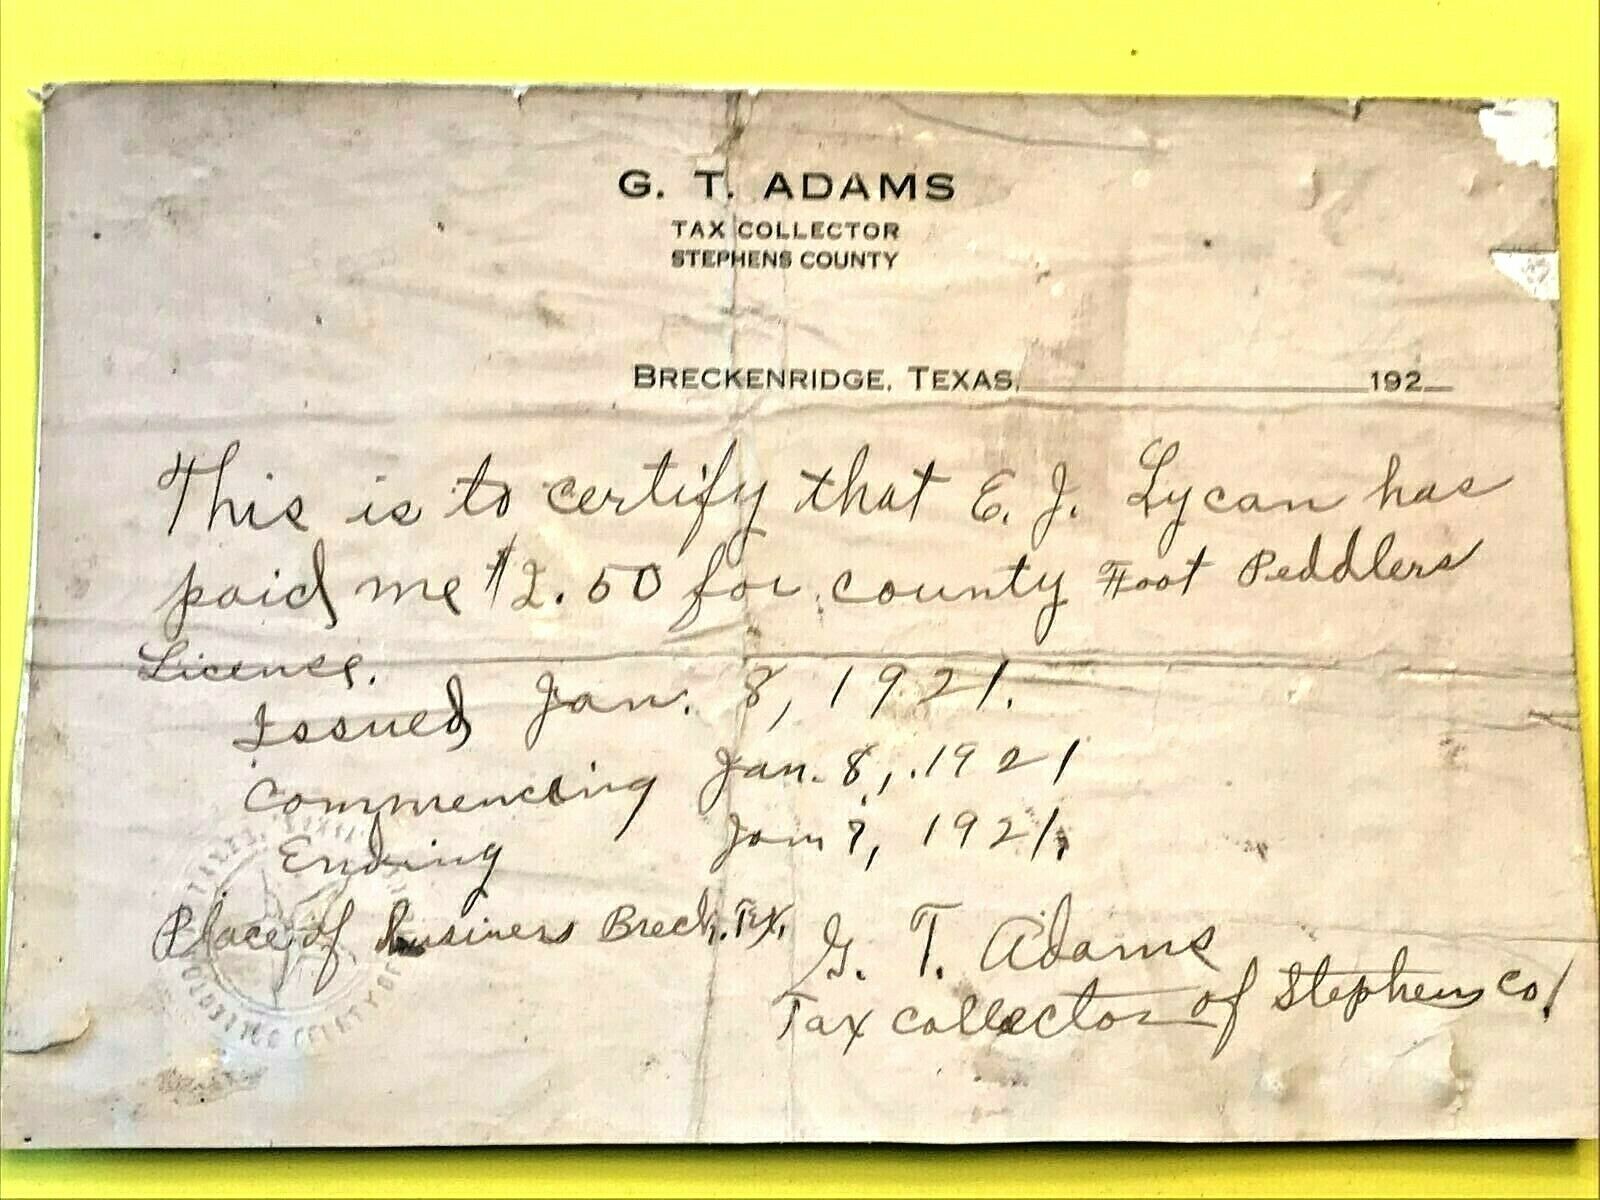 G. T. ADAMS
TAX COLLECTOR
STEPHENS COUNTY
BRECKENRIDGE, TEXAS, 192
This is to certify that E. J. Lycan has
paid me $2.50 for county Foot Peddlers
License.
Issued Jan. 8, 1921.
Commencing Jan. 8, 1921
Ending Jan 7, 1921.
Place of business Breck. Tex.
G. T. Adams
Tax collector of Stephens Co.